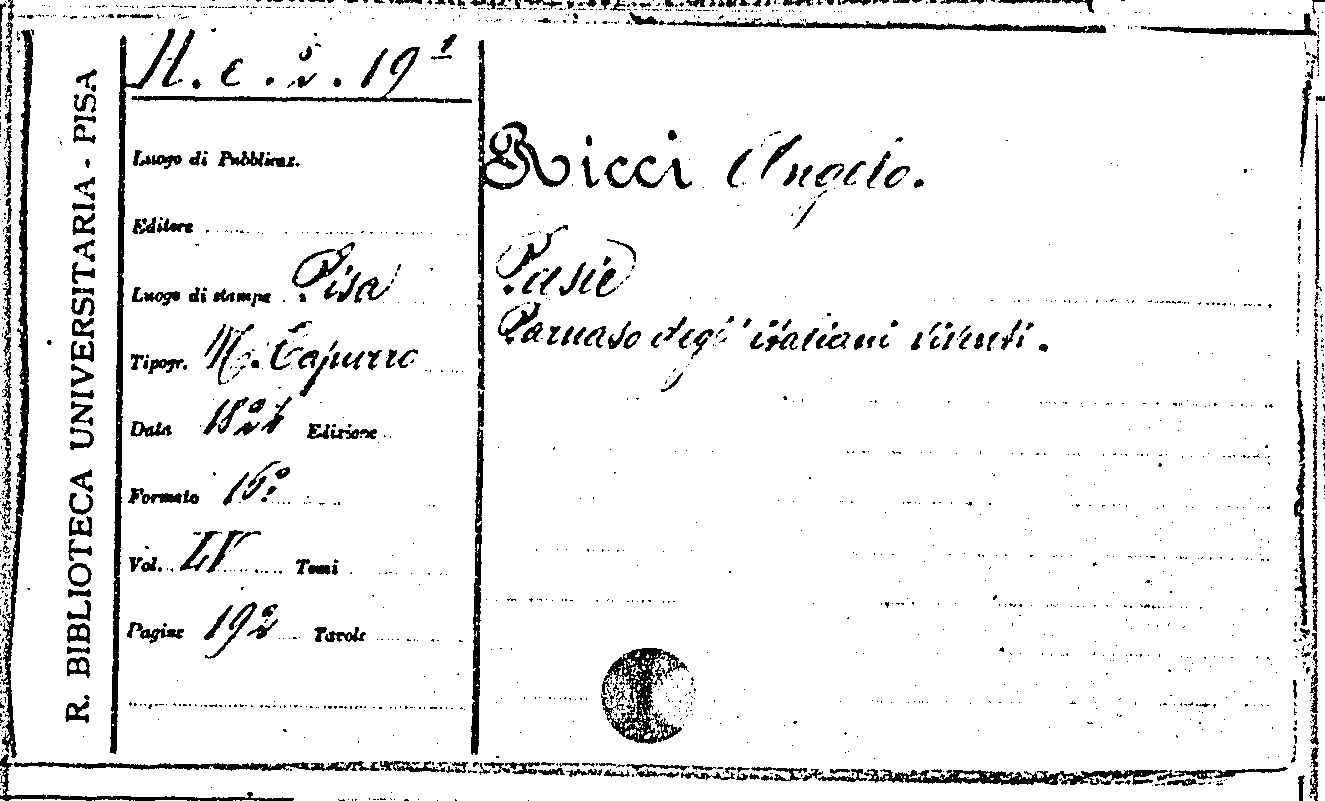 R. BIBLIOTECA UNIVERSITARIA - PISA
H. c. 5/2. 19 1
Luogo di Pubblicaz.
Editore
Luogo di stampa Pisa
Tipogr. N. Capurro
Data 1824 Edizione
Formato 16º
Vol. LV Tomi
Pagine 192 Tavole
Ricci Angelo.
Poesie
Parnaso degl' italiani viventi.